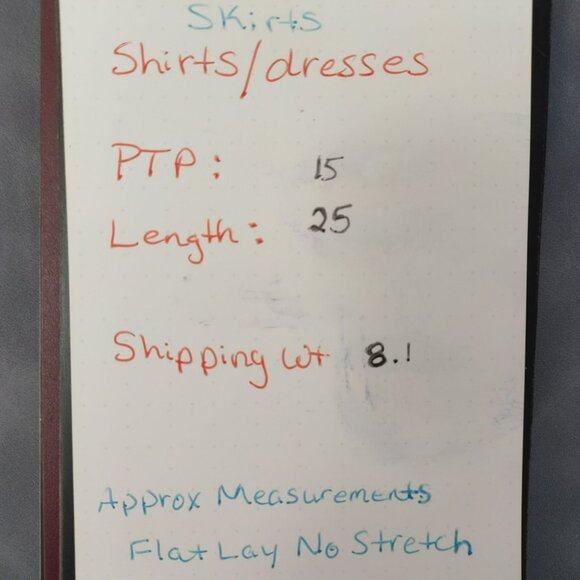 Skirts
Shirts/dresses
PTP: 15
Length: 25
Shipping wt 8.1
Approx Measurements
Flat Lay No Stretch